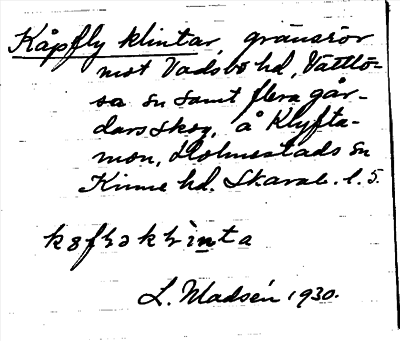 Kåpfly klintar, gränsrör
mot Vadsbo hd, Vättlö-
sa sn samt flera går-
dars skog, å Klyfta-
mon, Holmestads sn
Kinne hd. Skarab. l. 5.
L. Madsén 1930.